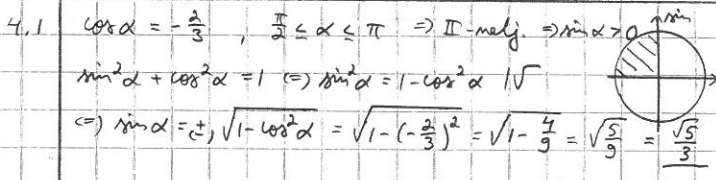 4.1 cos α = -2/3 , π/2 ≤ α ≤ π ⇒ II-nelj. ⇒ sin α > 0 sin
sin²α + cos²α = 1 (=) sin²α = 1 - cos²α |√
(=) sin α = (±) √(1 - cos²α) = √(1 - (-2/3)²) = √(1 - 4/9) = √(5/9) = √5/3